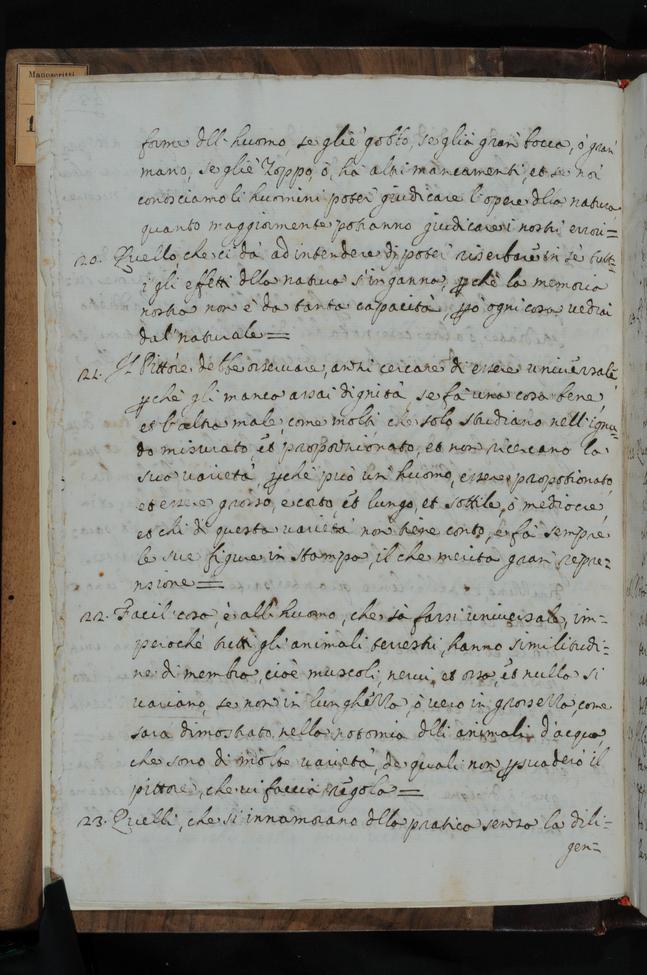 Manoscritti
1
forme dll' huomo, se gliè gobbo, se glia gran bocca, ò gran
mano, se gliè Zoppo, ò, hà altri mancamenti, et se noi
conosciamo li huomini poter giudicare l'opre dlla natura
quanto maggiormente potranno giudicare i nostri errori=
20. Quello che ci dà ad intendere di poter riserbare in sè tutt=
i gli effetti dlla natura s'inganna, pchè la memoria
nostra non è da tanta capacità, pò ogni cosa vedrai
dal naturale=
21. Il Pittore debbe osservare, anzi cercare di essere universale,
pchè gli manca assai dignità se fà una cosa bene
et l'altra male, come molti che solo studiano nell'ignu=
do misurato, et proporzionato, et non ricercano la
sua varietà, pchè può un huomo, essere proportionato,
et essere grosso, e corto, et lungo, et sottile, ò mediocre
et chi di questa varietà non tiene conto, e fà sempre
le sue figure in stampa, il che merita gran repre=
nsione=
22. Facil cosa, è all'huomo, che sà farsi universale, im=
perochè tutti gli animali terrestri, hanno similitudi=
ne di membra, cioè muscoli, nervi, et ossa, et nulla si
variano, se non in lunghezza, ò vero in grossezza, come
sarà dimostrato, nella notomia dlli animali d'acqua,
che sono di molte varietà, de quali non psuaderò il
pittore, che vi faccia regola=
23. Quelli, che si innamorano dlla pratica senza la dili=
gen=